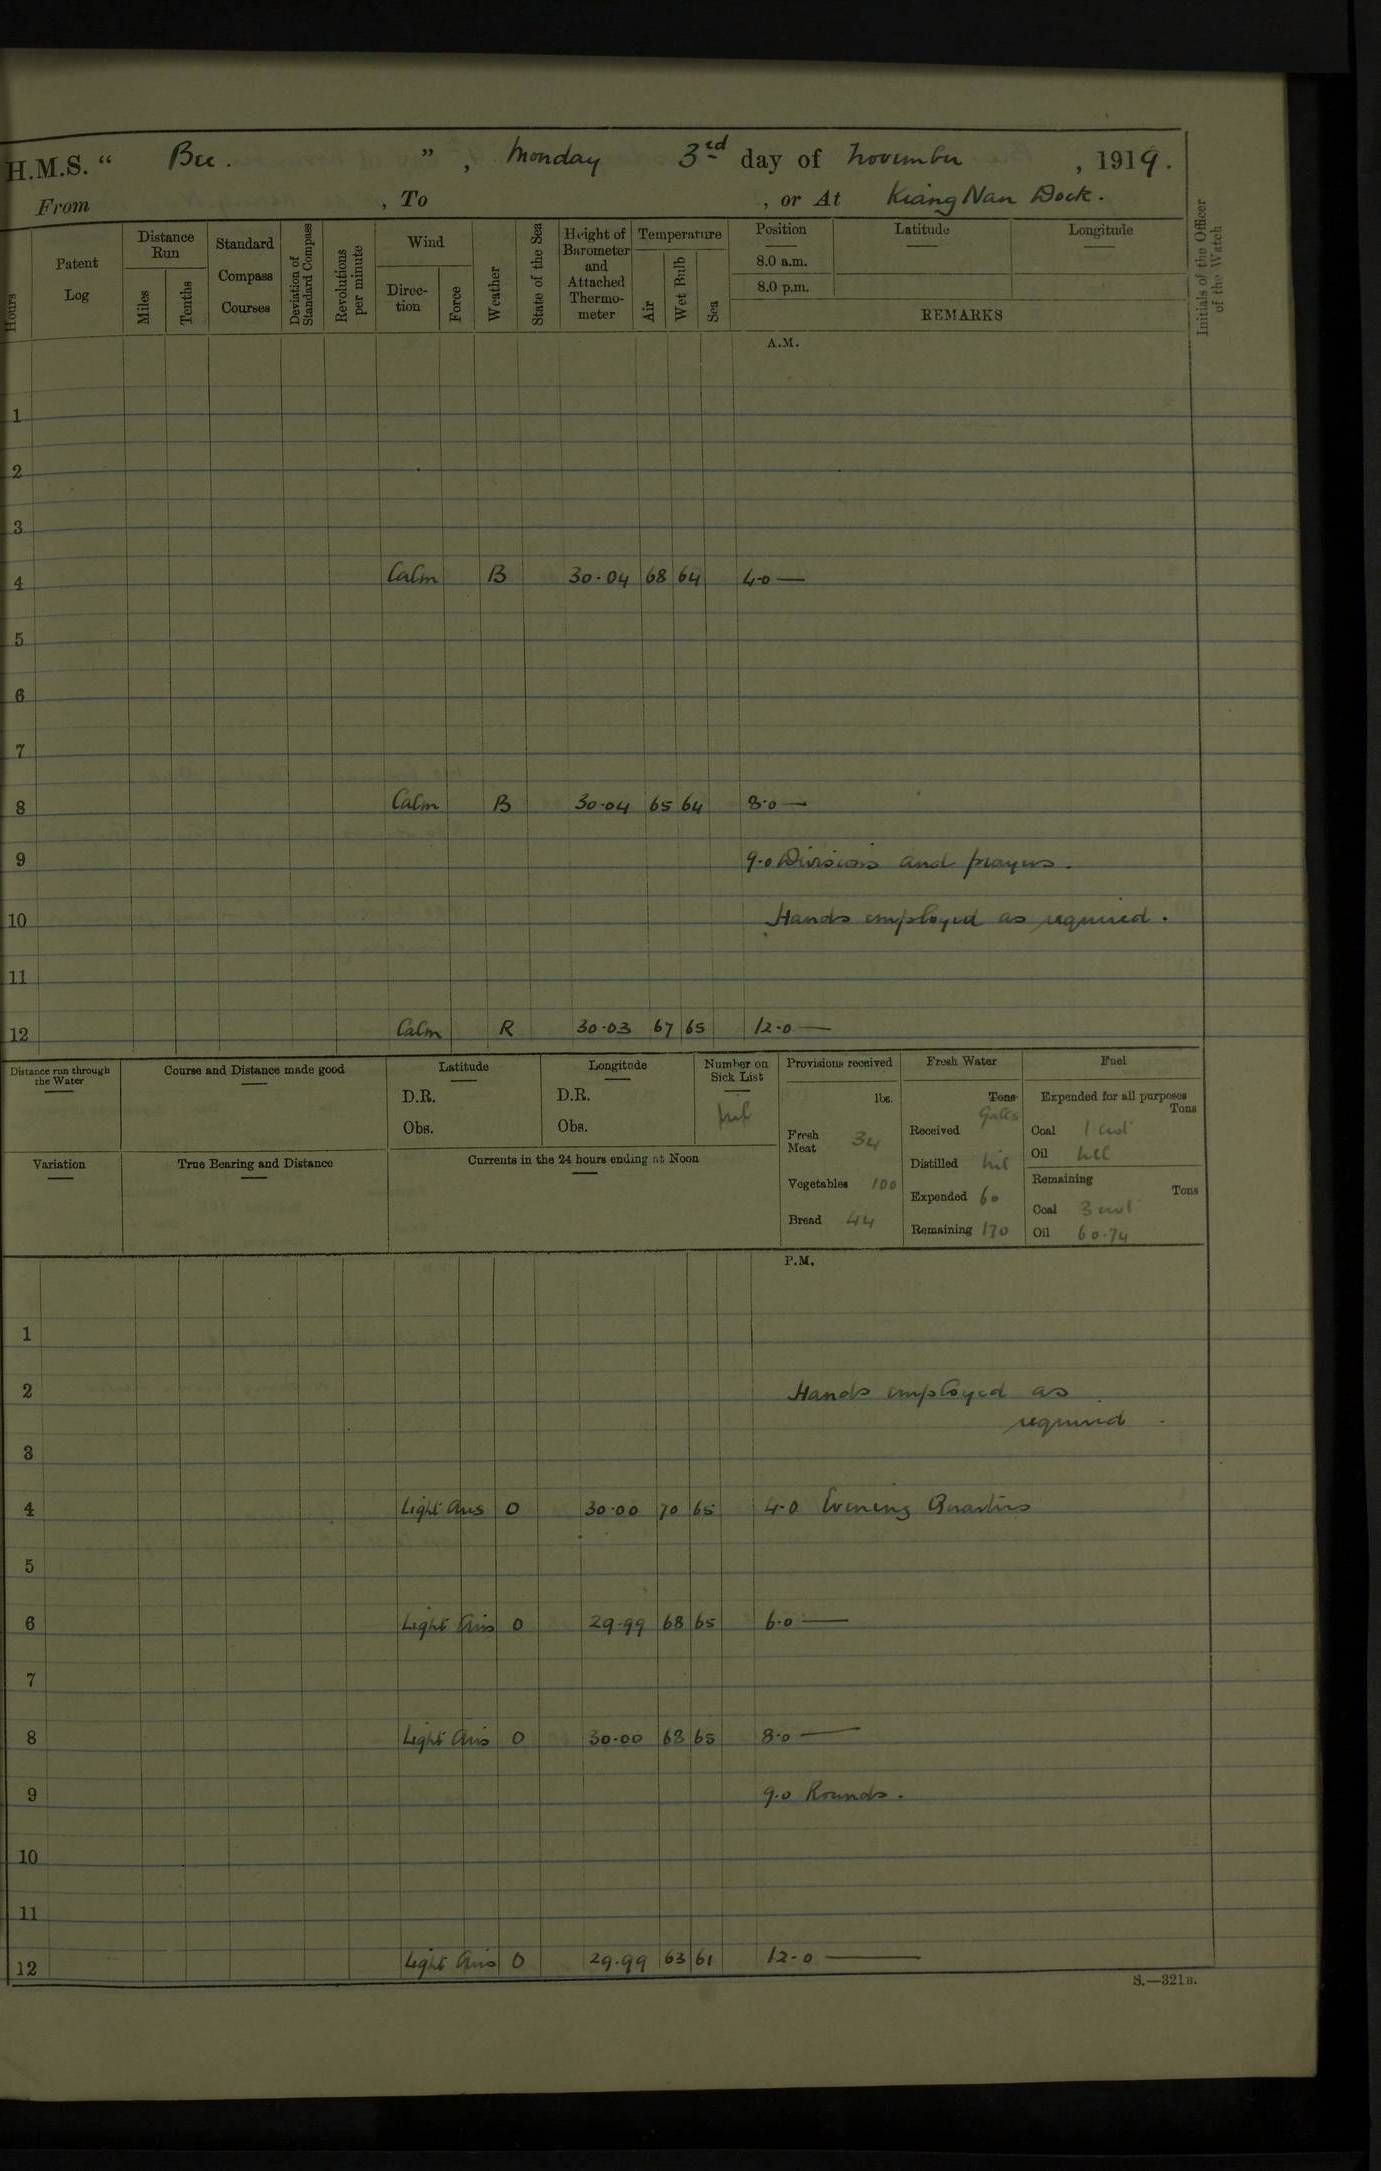 H.M.S. “ Bee. ” , Monday 3rd day of November , 1919.
From , To , or At Kiang Nan Dock.
Hours
Patent Log
Distance Run
Miles
Tenths
Standard Compass Courses
Deviation of Standard Compass
Revolutions per minute
Wind
Direc-tion
Force
Weather
State of the Sea
Height of Barometer and Attached Thermo-meter
Temperature
Air
Wet Bulb
Sea
Position
8.0 a.m.
8.0 p.m.
Latitude
Longitude
REMARKS
Initials of the Officer of the Watch
A.M.
1
2
3
4 Calm B 30.04 68 64 4.0 —
5
6
7
8 Calm B 30.04 65 64 8.0 —
9 9.0 Divisions and prayers.
10 Hands employed as required.
11
12 Calm R 30.03 67 65 12.0 —
Distance run through the Water
Course and Distance made good
Latitude
D.R.
Obs.
Longitude
D.R.
Obs.
Number on Sick List
nil
Variation
True Bearing and Distance
Currents in the 24 hours ending at Noon
Provisions received
lbs.
Fresh Meat 34
Vegetables 100
Bread 44
Fresh Water
Tons
Galls
Received
Distilled nil
Expended 60
Remaining 170
Fuel
Expended for all purposes
Tons
Coal 1 cwt
Oil nil
Remaining
Tons
Coal 3 cwt
Oil 60.74
P.M.
1
2 Hands employed as
required.
3
4 Light airs O 30.00 70 65 4.0 Evening Quarters
5
6 Light airs O 29.99 68 65 6.0 —
7
8 Light airs O 30.00 68 65 8.0 —
9 9.0 Rounds.
10
11
12 Light airs O 29.99 63 61 12.0 —
S.—321B.